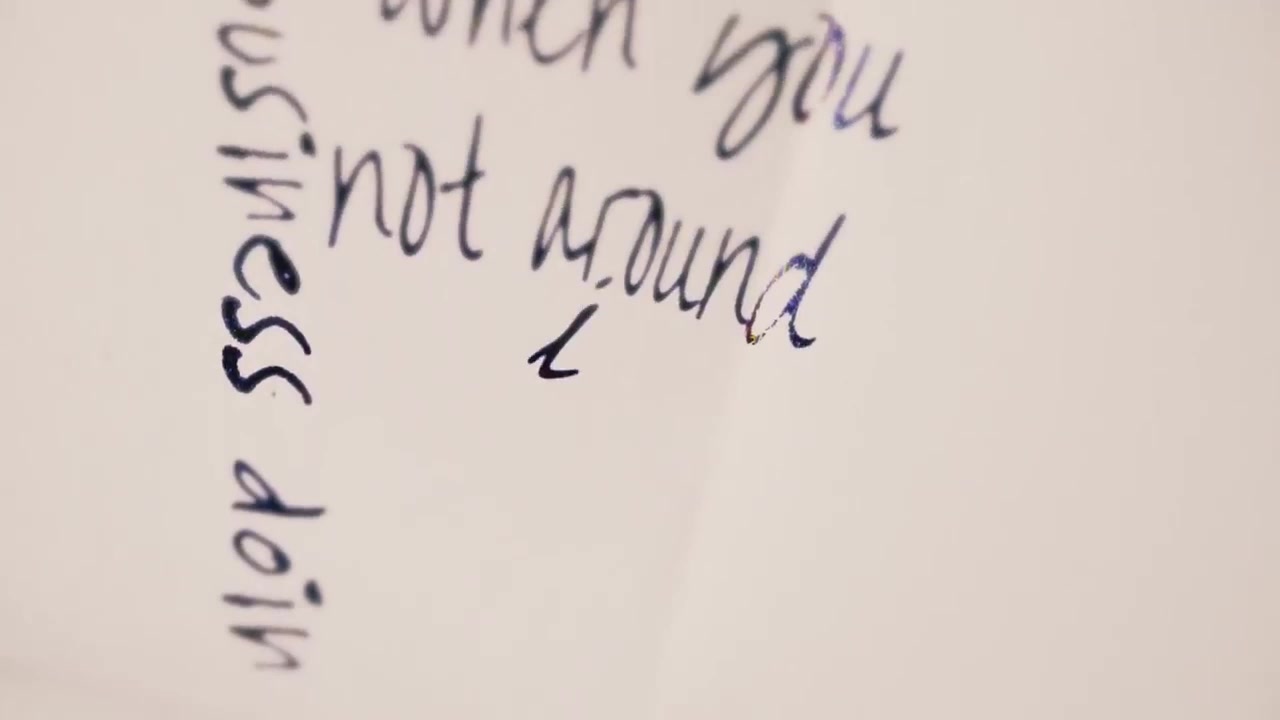 when you
not around
i
usiness doin